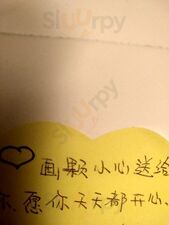 画颗小心送给
你.愿你天天都开心.
slurpy
slurpy